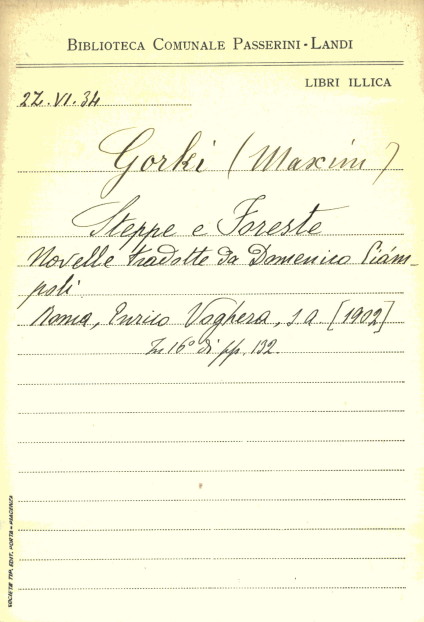 BIBLIOTECA COMUNALE PASSERINI-LANDI
LIBRI ILLICA
27.VI.34
Gorki (Maxim)
Steppe e Foreste
Novelle tradotte da Domenico Ciám-
poli
Roma, Enrico Voghera, s a [1902]
In 16° di pp. 132.
SOCIETÀ TIP. EDIT. PORTA - PIACENZA